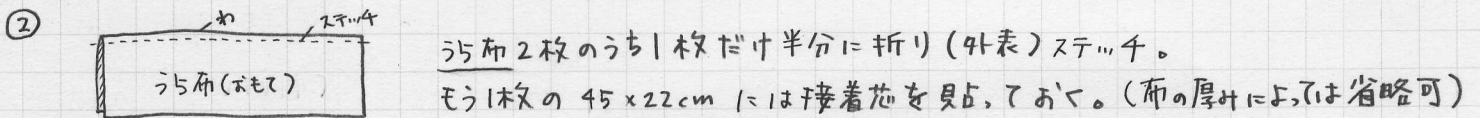 ②
わ
ステッチ
うら布(おもて)
うら布2枚のうち1枚だけ半分に折り(外表)ステッチ。
もう1枚の 45×22cm には接着芯を貼っておく。(布の厚みによっては省略可)